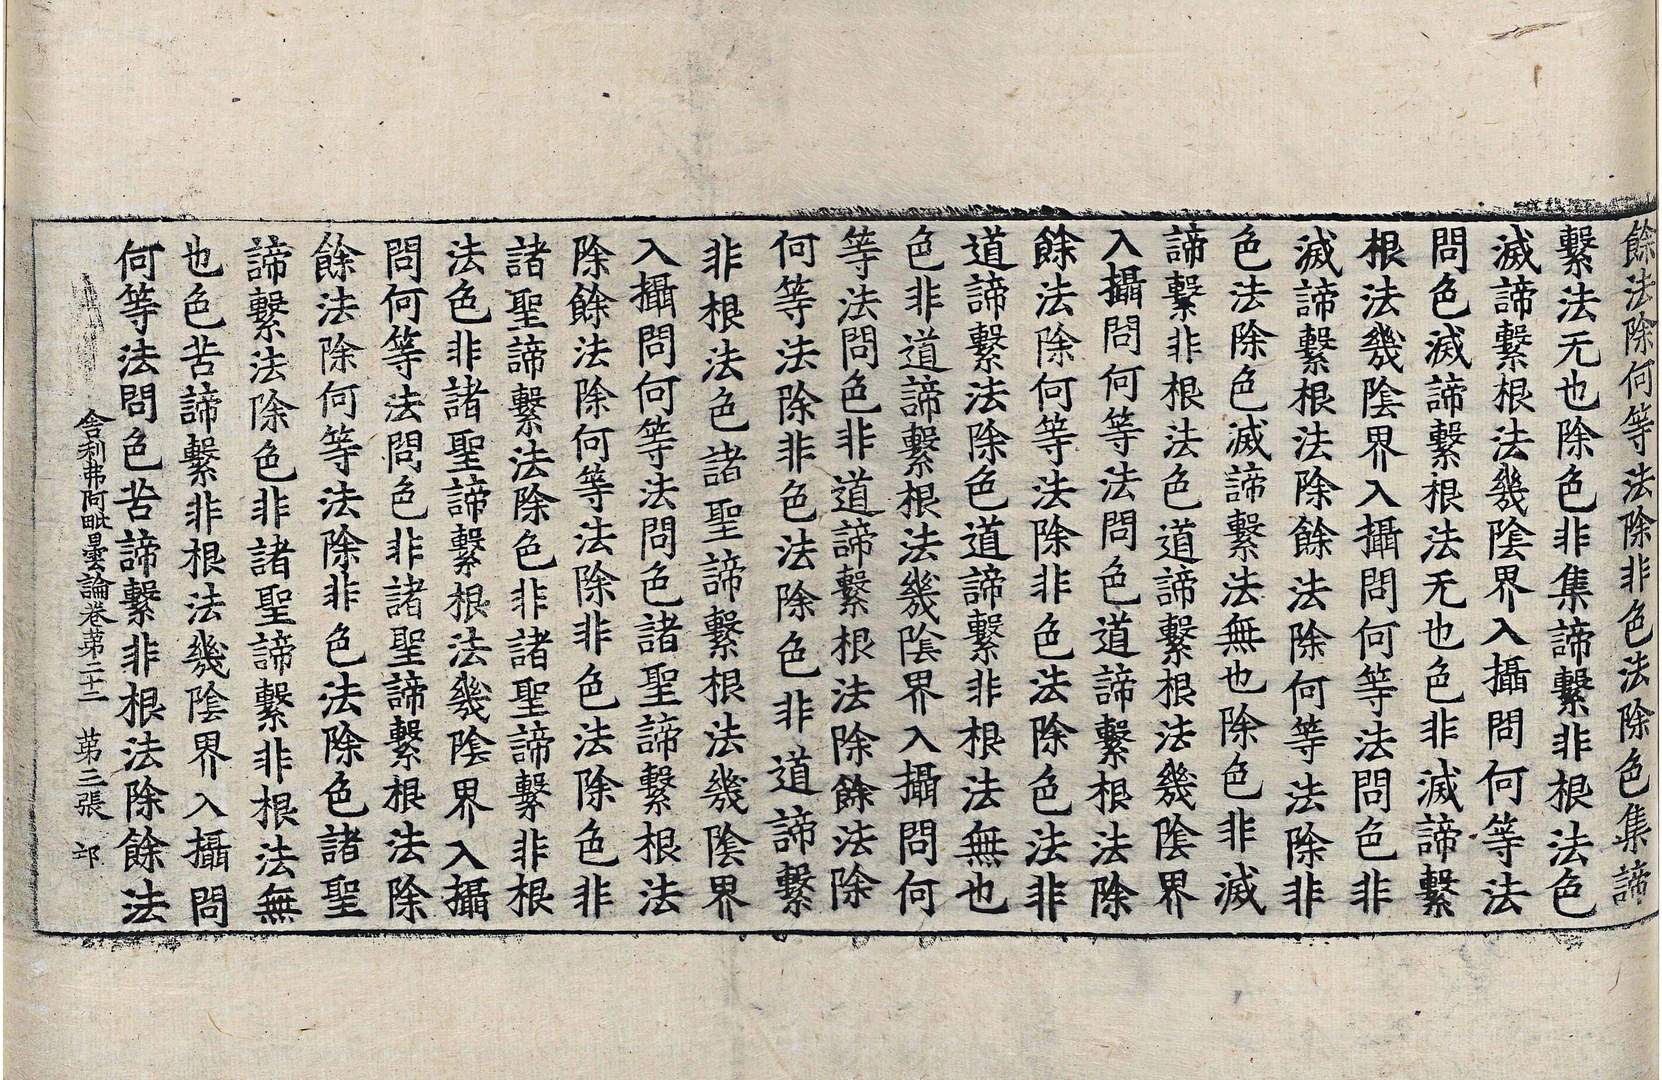 餘法除何等法除非色法除色集諦
繫法无也除色非集諦繫非根法色
滅諦繫根法幾陰界入攝問何等法
問色滅諦繫根法无也色非滅諦繫
根法幾陰界入攝問何等法問色非
滅諦繫根法除餘法除何等法除非
色法除色滅諦繫法無也除色非滅
諦繫非根法色道諦繫根法幾陰界
入攝問何等法問色道諦繫根法除
餘法除何等法除非色法除色法非
道諦繫法除色道諦繫非根法無也
色非道諦繫根法幾陰界入攝問何
等法問色非道諦繫根法除餘法除
何等法除非色法除色非道諦繫
非根法色諸聖諦繫根法幾陰界
入攝問何等法問色諸聖諦繫根法
除餘法除何等法除非色法除色非
諸聖諦繫法除色非諸聖諦繫非根
法色非諸聖諦繫根法幾陰界入攝
問何等法問色非諸聖諦繫根法除
餘法除何等法除非色法除色諸聖
諦繫法除色非諸聖諦繫非根法無
也色苦諦繫非根法幾陰界入攝問
何等法問色苦諦繫非根法除餘法
舍利弗阿毗曇論卷苐二十二 苐三張 邙